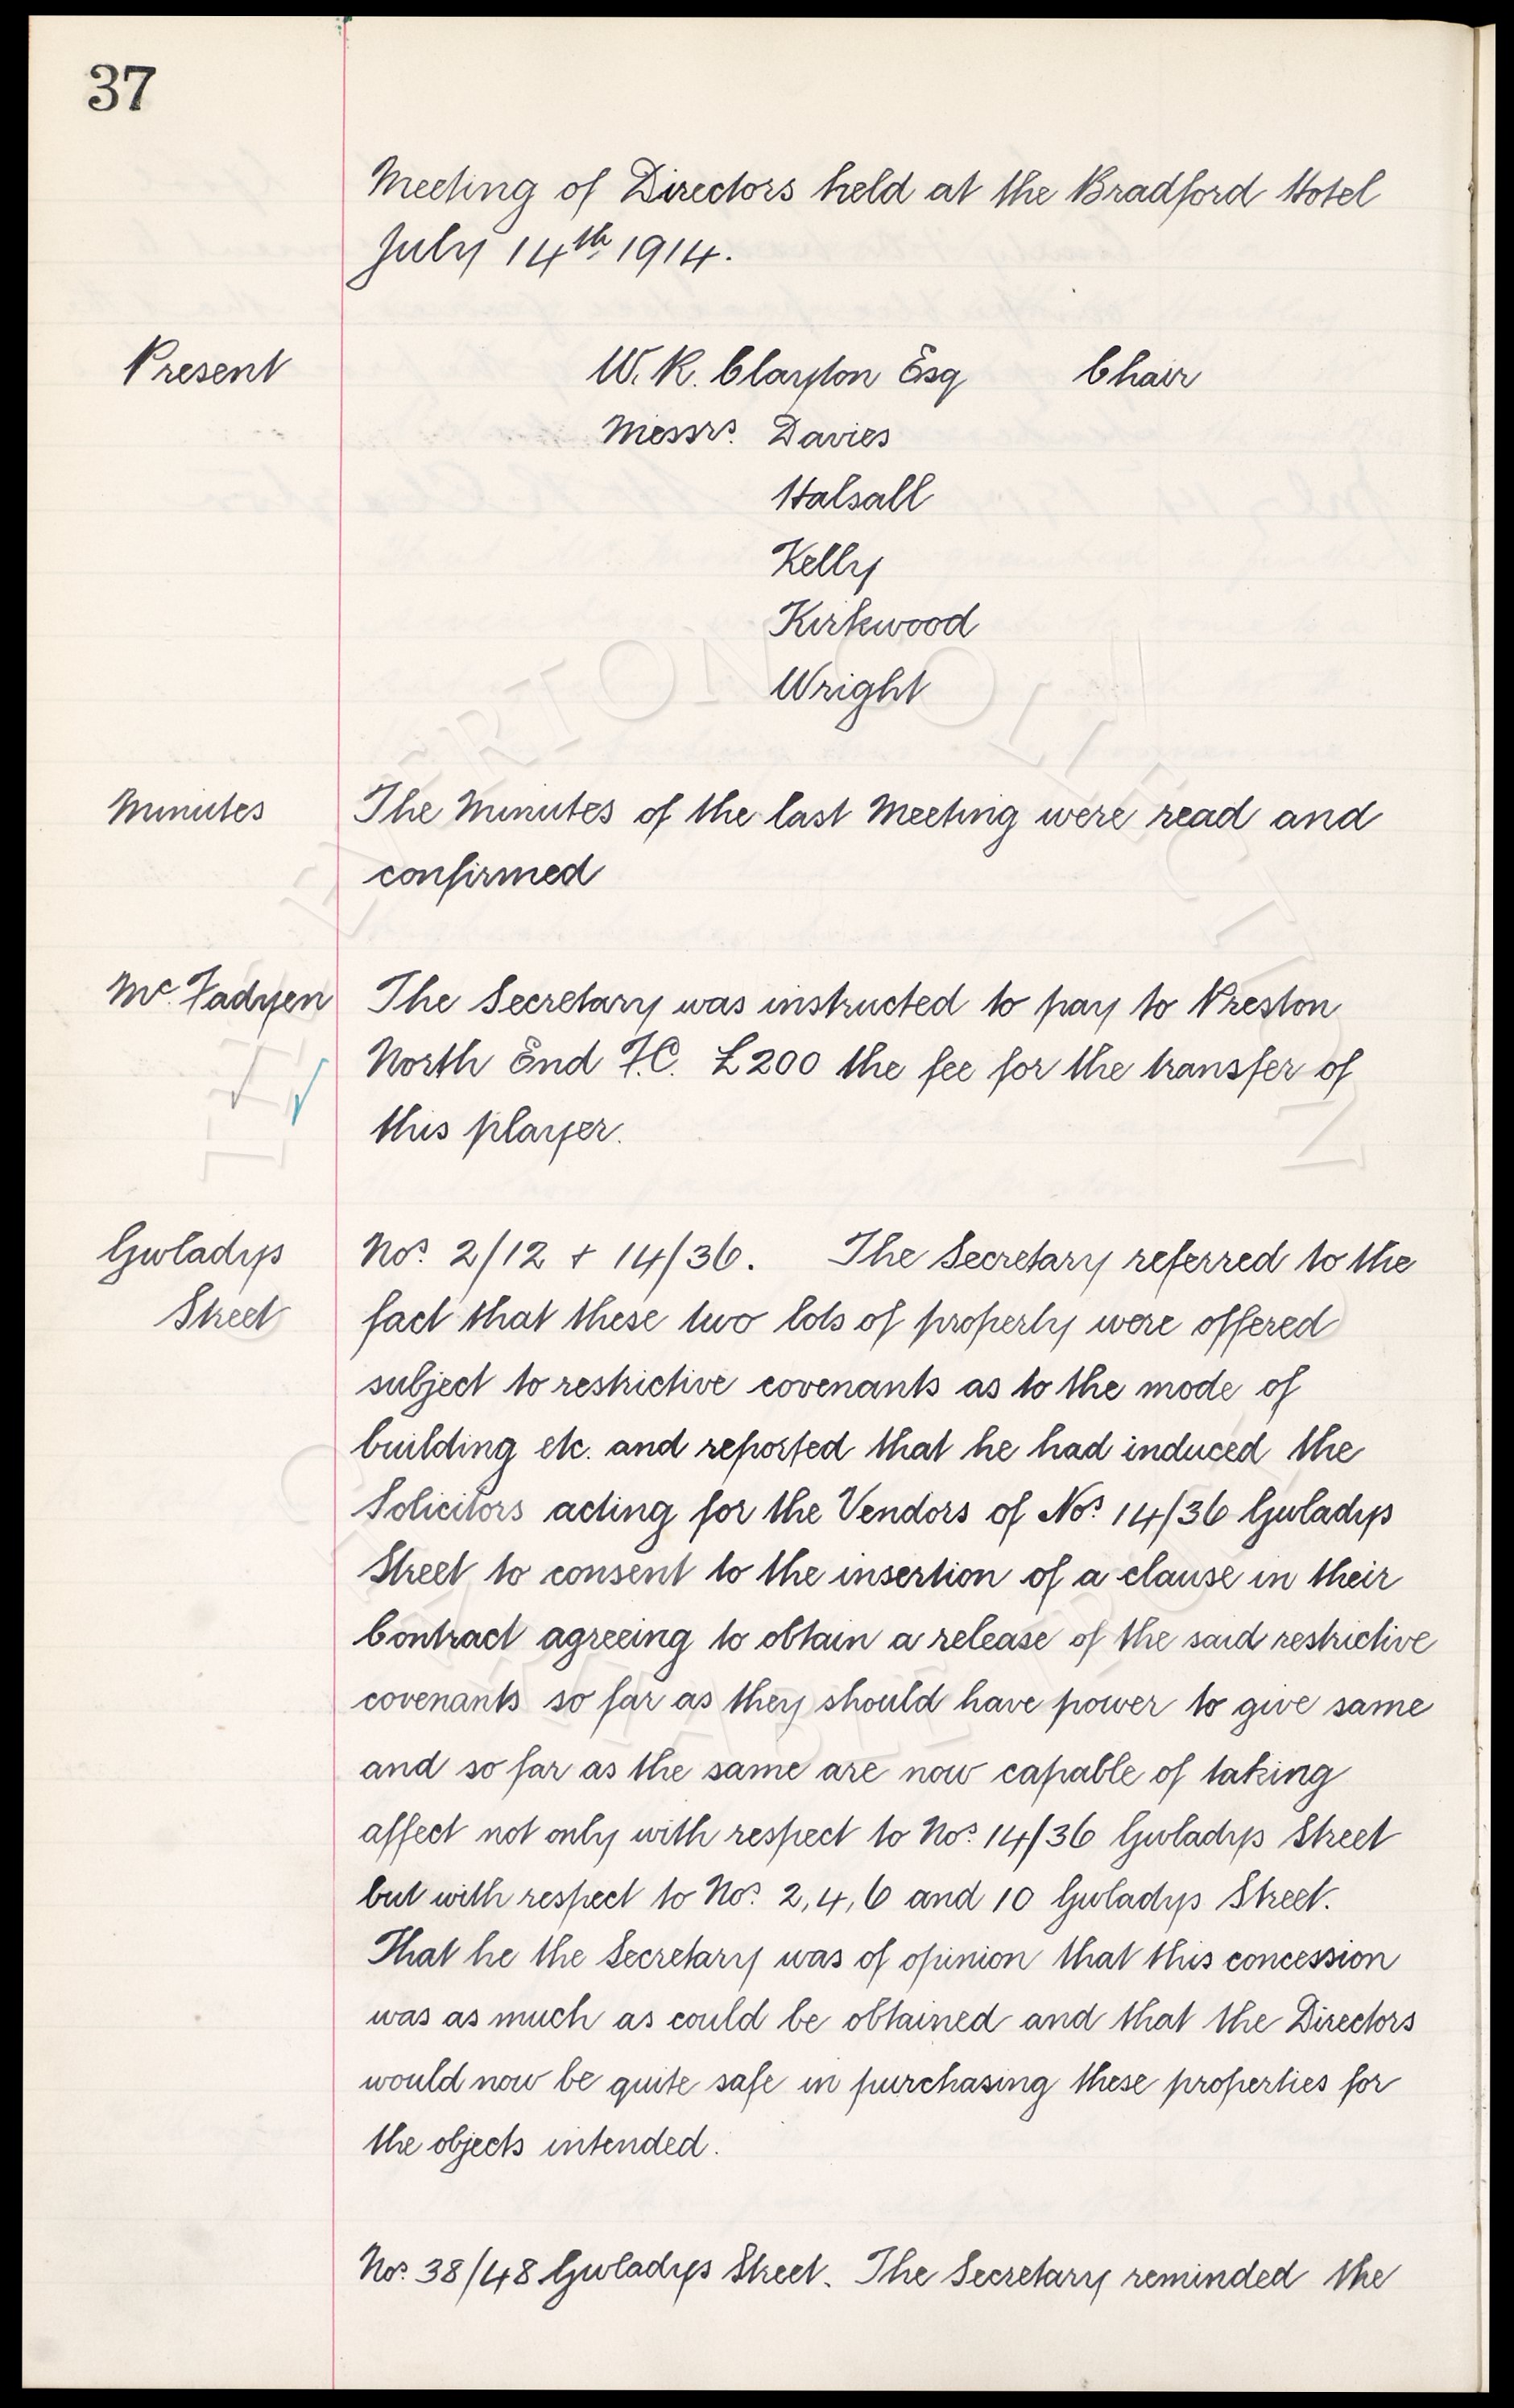 37
Meeting of Directors held at the Bradford Hotel
July 14th 1914.
Present
W. R. Clayton Esq Chair
Messrs. Davies
Halsall
Kelly
Kirkwood
Wright
Minutes
The Minutes of the last Meeting were read and
confirmed
Mc. Fadyen
The Secretary was instructed to pay to Preston
North End F.C. £200 the fee for the transfer of
this player.
Gwladys
Street
Nos. 2/12 + 14/36. The Secretary referred to the
fact that these two lots of property were offered
subject to restrictive covenants as to the mode of
building etc. and reported that he had induced the
Solicitors acting for the Vendors of Nos. 14/36 Gwladys
Street to consent to the insertion of a clause in their
Contract agreeing to obtain a release of the said restrictive
covenants so far as they should have power to give same
and so far as the same are now capable of taking
affect not only with respect to Nos. 14/36 Gwladys Street
but with respect to Nos. 2, 4, 6 and 10 Gwladys Street.
That he the Secretary was of opinion that this concession
was as much as could be obtained and that the Directors
would now be quite safe in purchasing these properties for
the objects intended.
Nos. 38/48 Gwladys Street. The Secretary reminded the